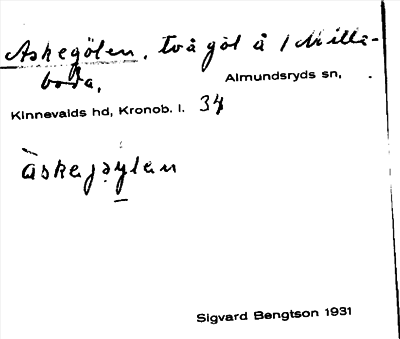 Askegölen, två göl å / Milla-
boda, Almundsryds sn,
Kinnevalds hd, Kronob. l. 34
àskajöylan
Sigvard Bengtson 1931